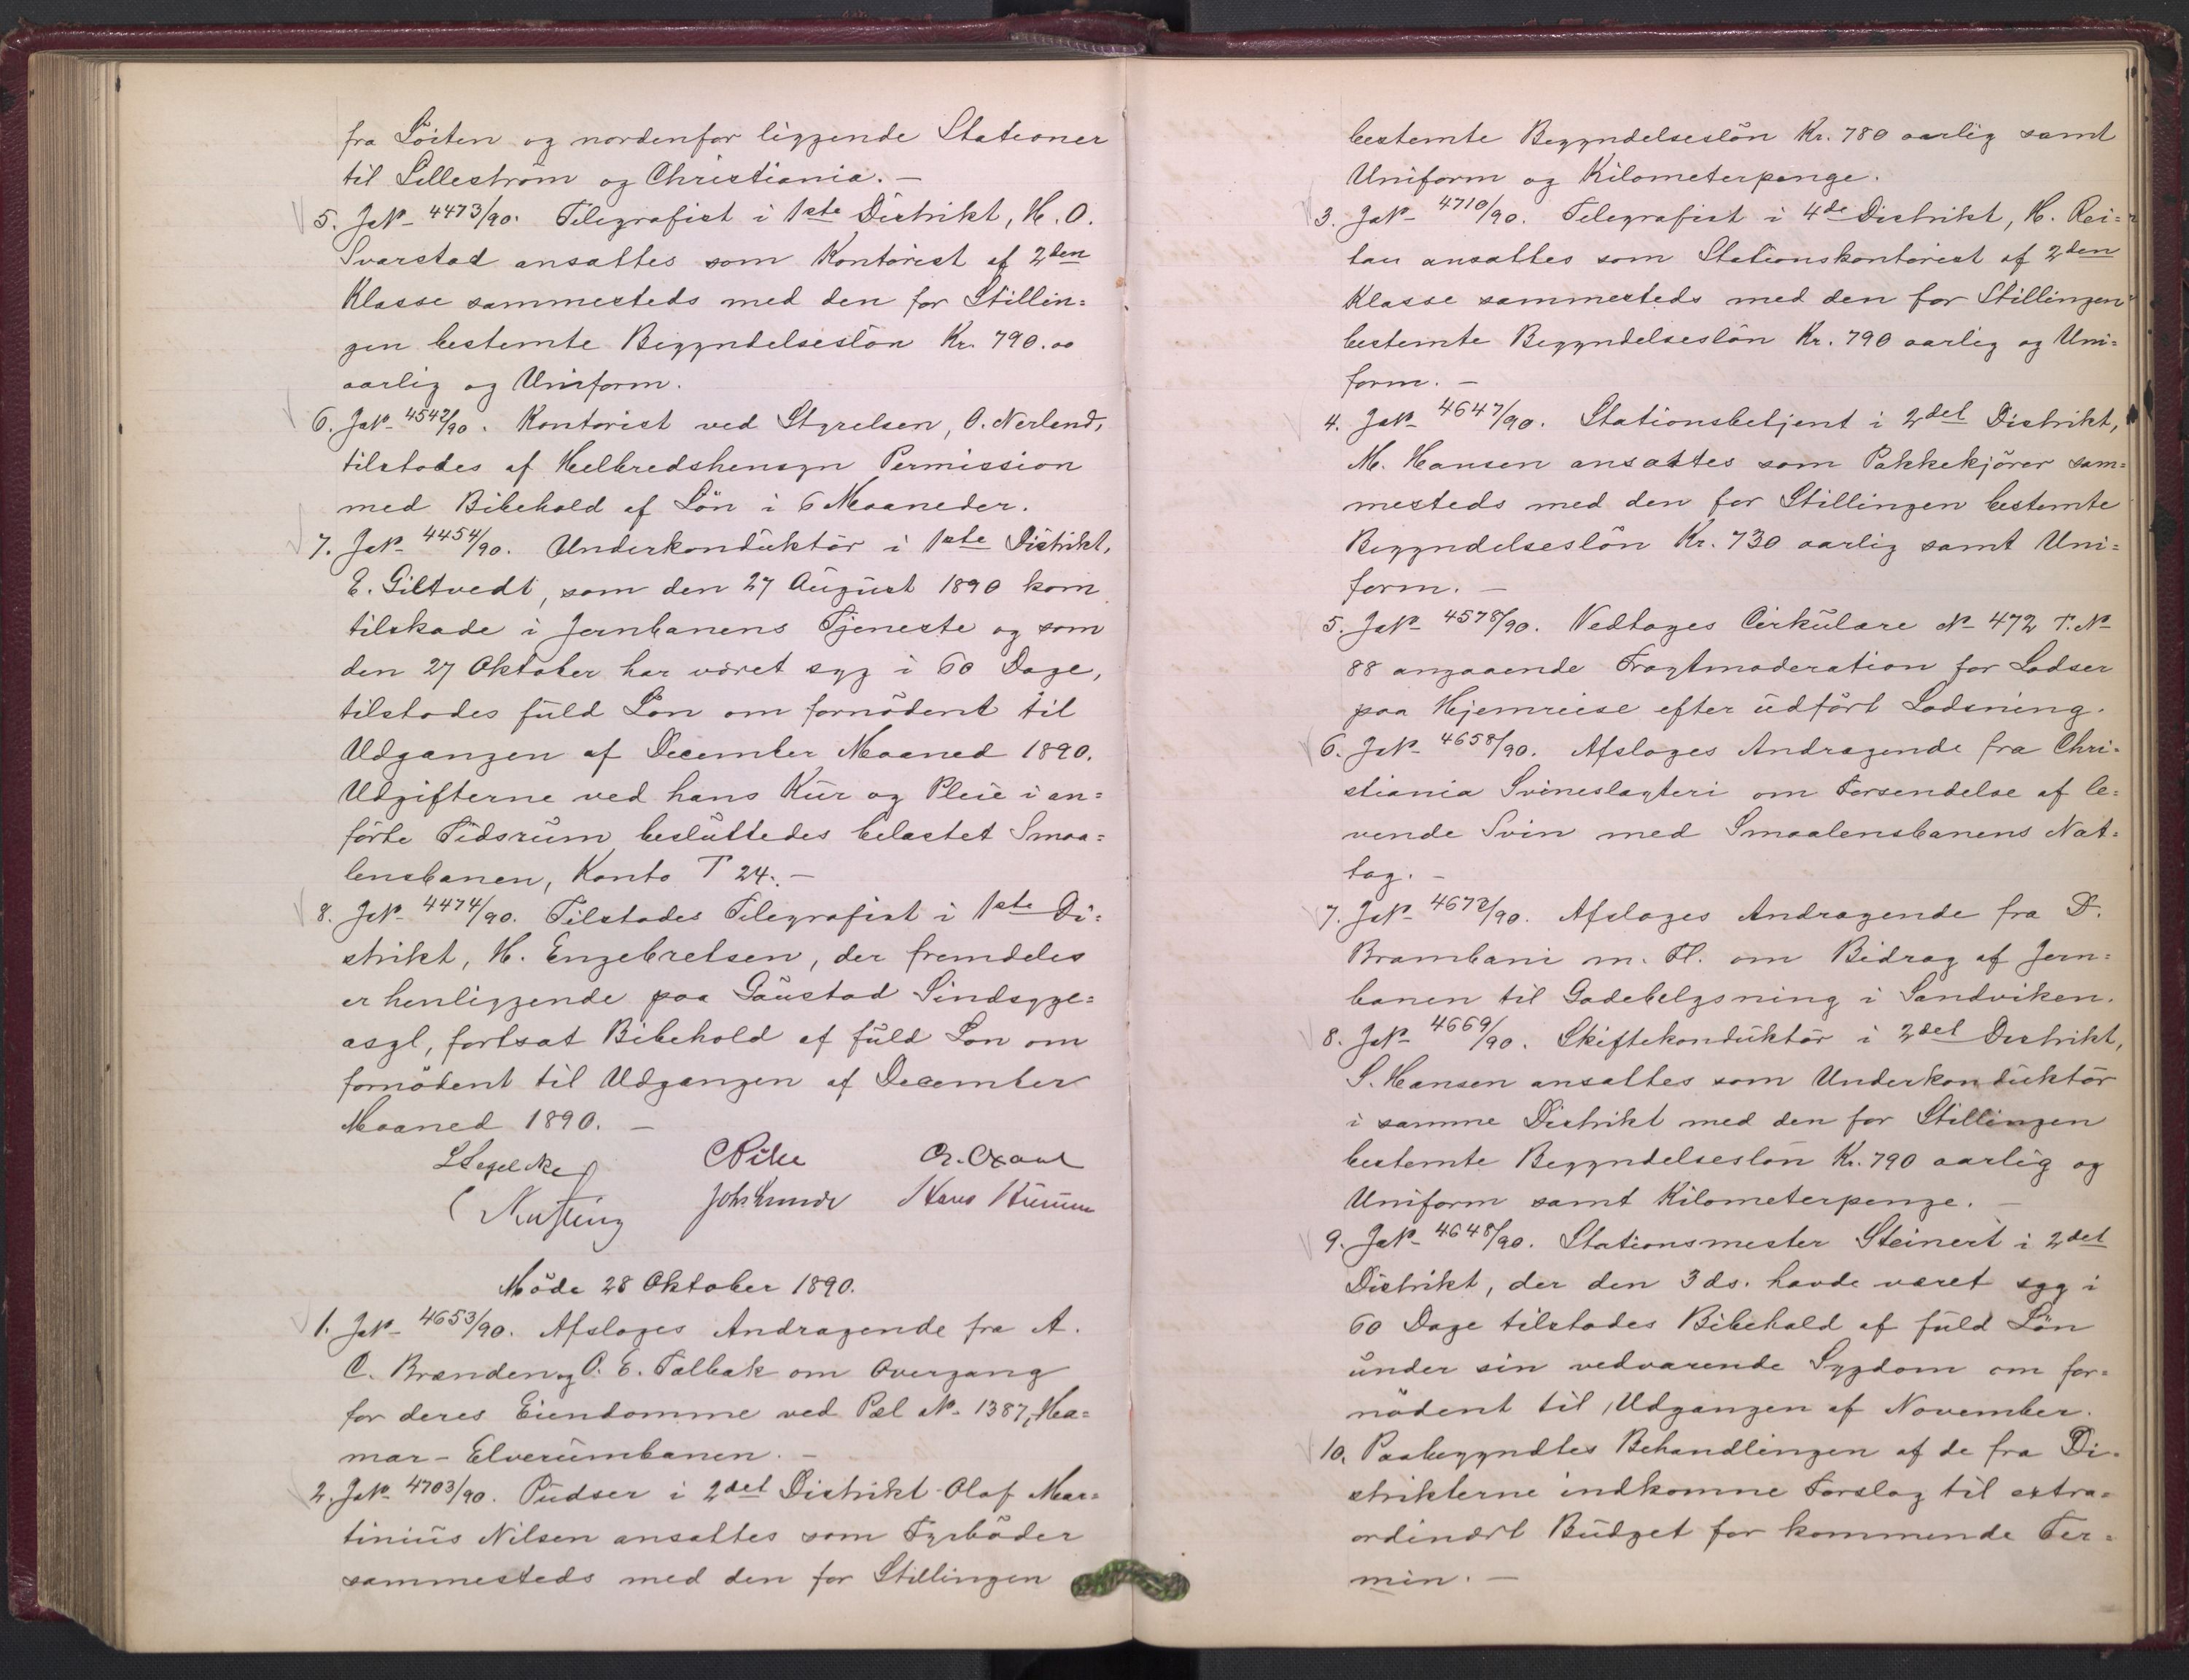 fra Löiten og nordenfor liggende Stationer
til Lilleström og Christiania. —
5. JN⁰ 4473/90. Telegrafist i 1ste Distrikt, H. O.
Svarstad ansattes som Kontorist af 2den
Klasse sammesteds med den for Stillin=
gen bestemte Begyndelseslön Kr. 790.00
aarlig og Uniform.
6. JN⁰ 4542/90. Kontorist ved Styrelsen, O. Nerland,
tilstodes af Helbredshensyn Permission
med Bibehold af Lön i 6 Maaneder.
7. JN⁰ 4454/90. Underkonduktör i 1ste Distrikt,
E. Giltvedt, som den 27 August 1890 kom
tilskade i Jernbanens Tjeneste og som
den 27 Oktober har været syg i 60 Dage,
tilstodes fuld Lön om fornödent til
Udgangen af December Maaned 1890.
Udgifterne ved hans Kur og Pleie i an=
förte Tidsrum besluttedes belastet Smaa=
lensbanen, Konto T 24. —
8. JN⁰ 4474/90. Tilstodes Telegrafist i 1ste Di=
strikt, H. Engebretsen, der fremdeles
er henliggende paa Gaustad Sindsyge=
asyl, fortsat Bibehold af fuld Lön om
fornödent til Udgangen af December
Maaned 1890. —
LSegelcke CPihl
Joh Lunde
Möde 28 Oktober 1890.
1. JN⁰ 4653/90. Afsloges Andragende fra A.
O. Brænden og O. E. Talbak om Overgang
for deres Eiendomme ved Pæl N⁰ 1387, Ha=
mar-Elverumbanen. —
2. JN⁰ 4703/90. Pudser i 2det Distrikt Olaf Mar=
tinius Nilsen ansattes som Fyrböder
sammesteds med den for Stillingen
bestemte Begyndelseslön Kr. 780 aarlig samt
Uniform og Kilometerpenge.
3. JN⁰ 4710/90. Telegrafist i 4de Distrikt, H. Rei=
tan ansattes som Stationskontorist af 2den
Klasse sammesteds med den for Stillingen
bestemte Begyndelseslön Kr. 790 aarlig og Uni=
form. —
4. JN⁰ 4647/90. Stationsbetjent i 2det Distrikt,
M. Hansen ansattes som Pakkekjörer sam=
mesteds med den for Stillingen bestemte
Begyndelseslön Kr. 730 aarlig samt Uni=
form. —
5. JN⁰ 4578/90. Vedtoges Cirkulære N⁰ 472 T. N⁰
88 angaaende Fragtmoderation for Lodser
paa Hjemreise efter udfört Lodsning.
6. JN⁰ 4658/90. Afsloges Andragende fra Chri=
stiania Svineslagteri om Forsendelse af le=
vende Svin med Smaalensbanens Nat=
tog. —
7. JN⁰ 4672/90. Afsloges Andragende fra D.
Brambani m. Fl. om Bidrag af Jern=
banen til Gadebelysning i Sandviken.
8. JN⁰ 4669/90. Skiftekonduktör i 2det Distrikt,
S. Hansen ansattes som Underkonduktör
i samme Distrikt med den for Stillingen
bestemte Begyndelseslön Kr. 790 aarlig og
Uniform samt Kilometerpenge. —
9. JN⁰ 4648/90. Stationsmester Steinert i 2det
Distrikt, der den 3 ds. havde været syg i
60 Dage tilstodes Bibehold af fuld Lön
under sin vedvarende Sygdom om for=
nödent til Udgangen af November.
10. Paabegyndtes Behandlingen af de fra Di=
strikterne indkomne Forslag til extra=
ordinært Budget for kommende Ter=
min. —